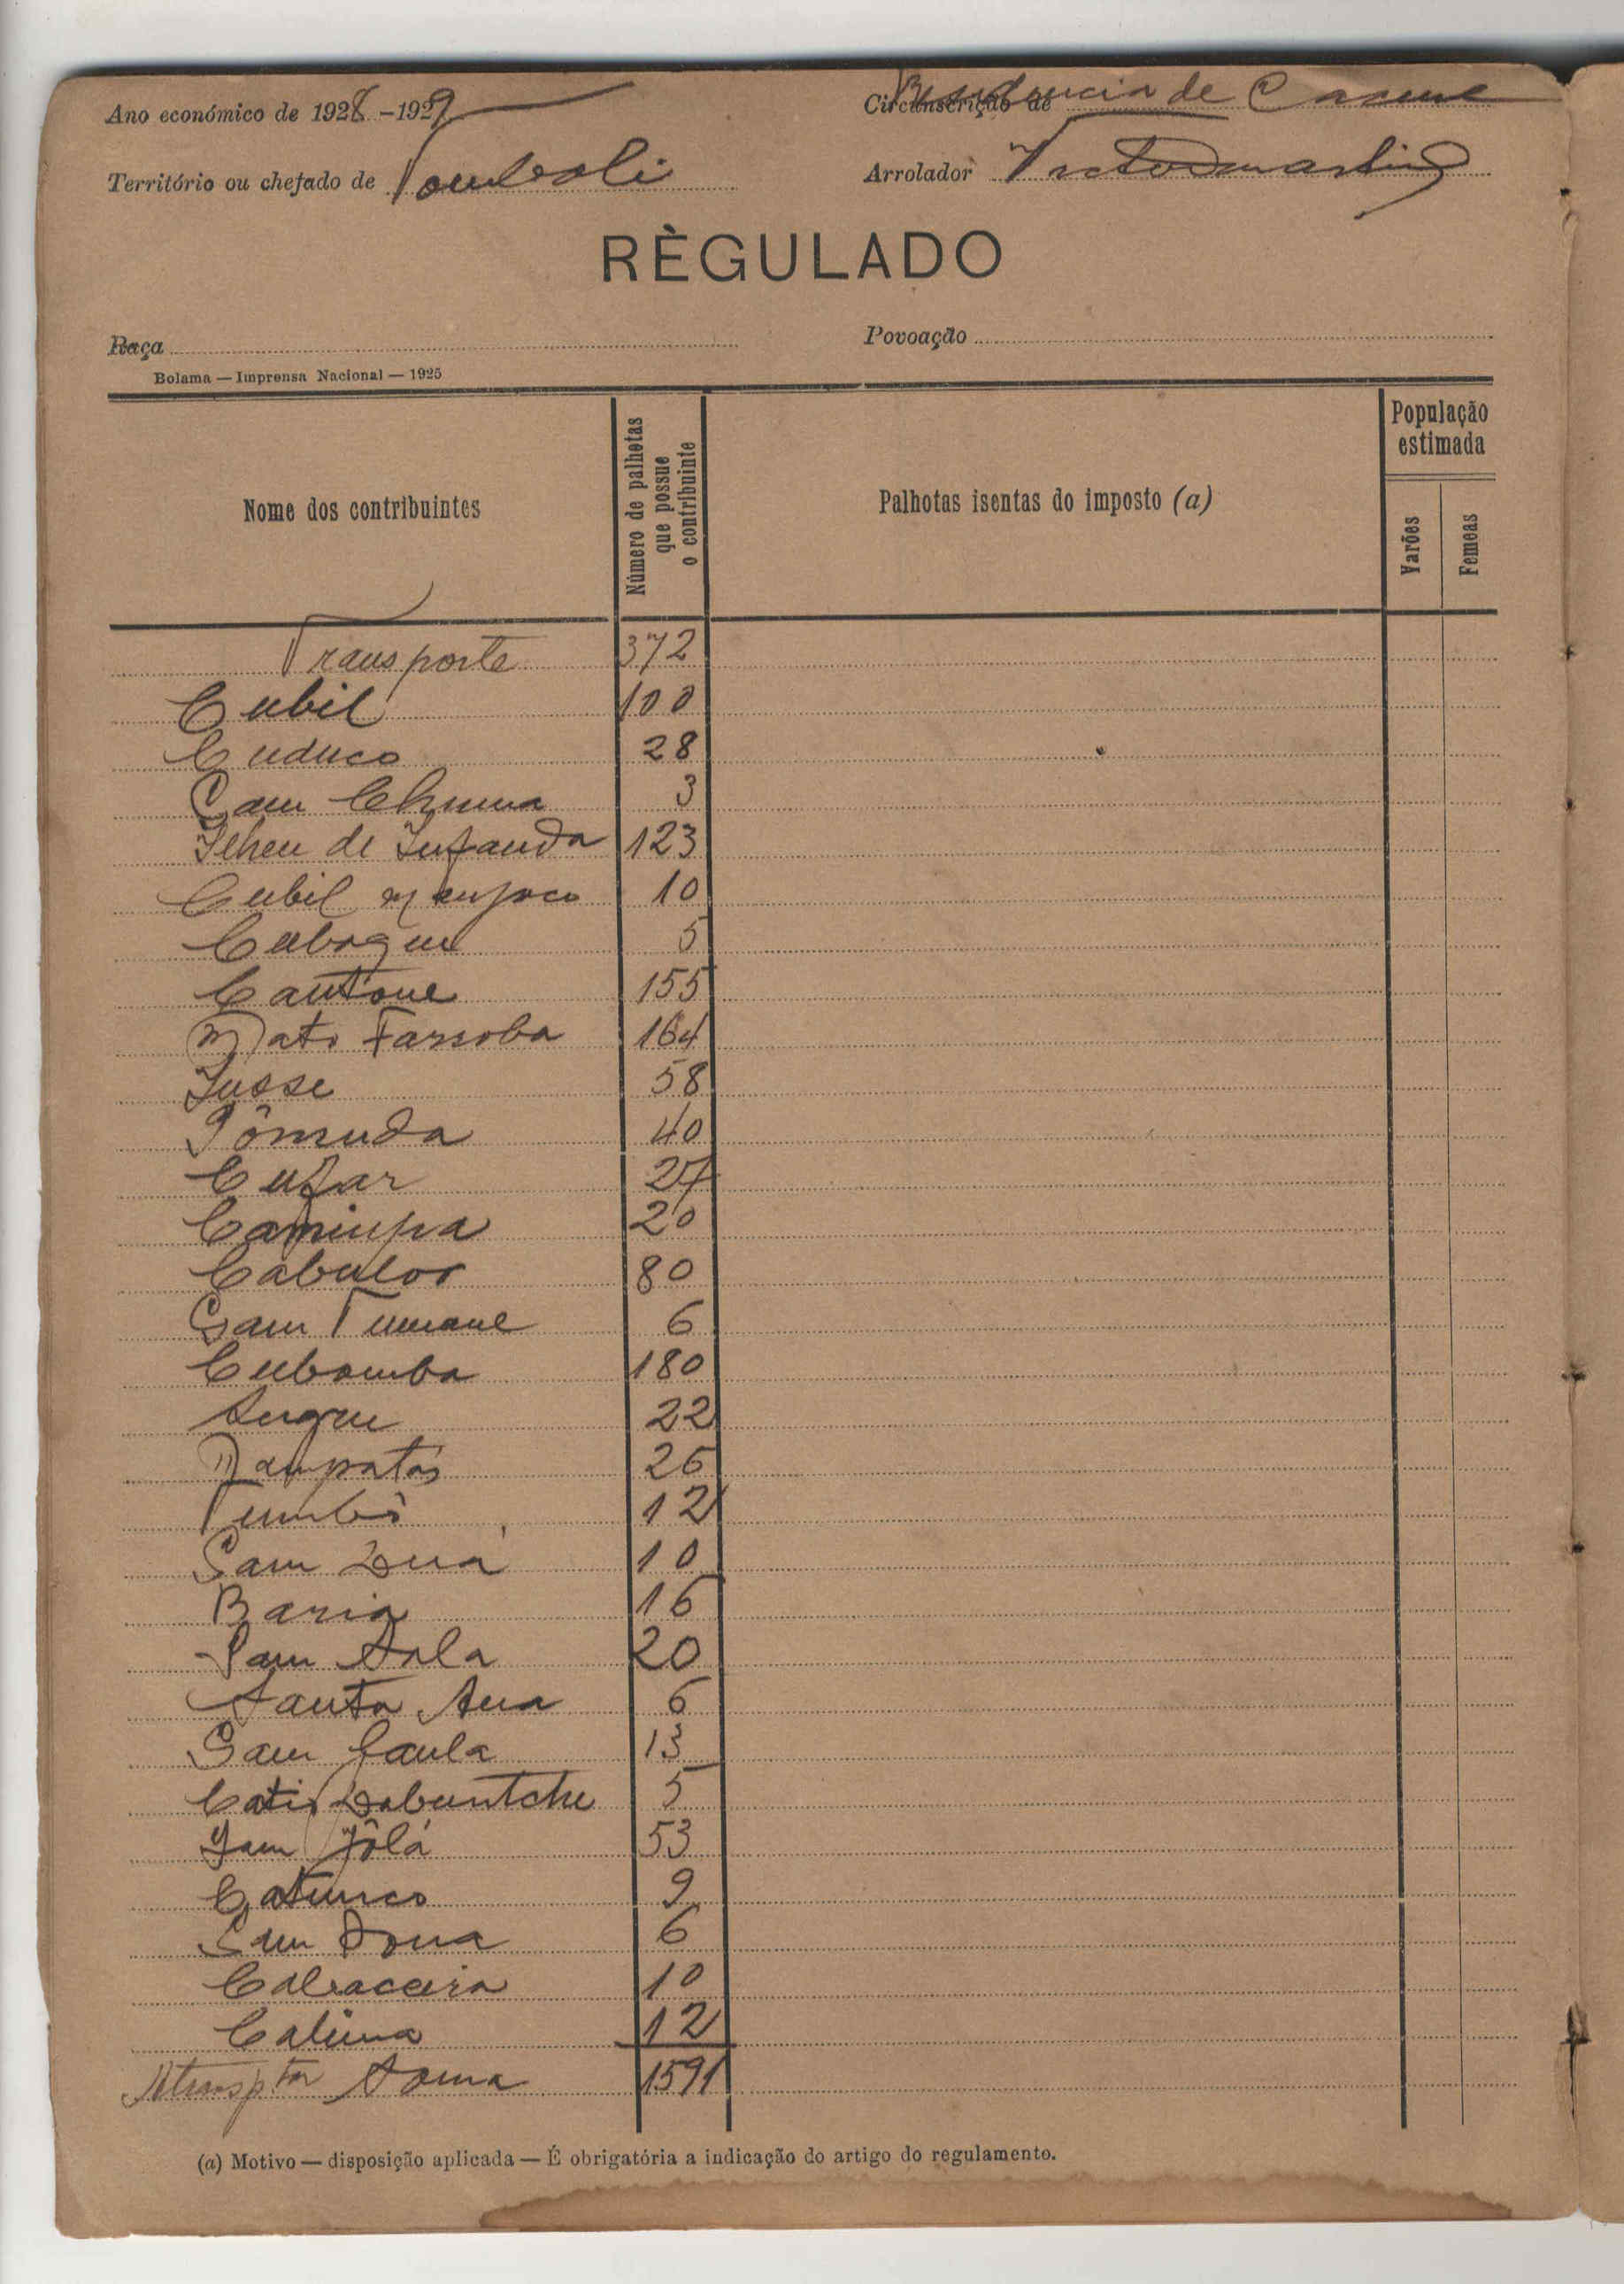 Ano económico de 1928-1929
Residencia de Cacine
Circunscrição de
Território ou chefado de Tombali
Arrolador Victor Martins
RÈGULADO
Raça
Povoação
Bolama — Imprensa Nacional — 1925
Nome dos contribuintes
Número de palhotas que possue o contribuinte
Palhotas isentas do imposto (a)
População estimada
Varões
Femeas
Transporte 372
Cubil 100
Cuduco 28
Cam Chuma 3
Ilheu de Infanda 123
Cubil manjaco 10
Cuboque 5
Cantone 155
Mato Farroba 164
Iusse 58
40
Cufar 27
20
Cabulor 80
Gam Tumane 6
Cubomba 180
22
Dampatás 26
Tumbô 12
Gam Duá 10
Baria 16
Gam Sala 20
Santa Ana 6
Gam Caula 13
5
Gam Jólá 53
Catunco 9
6
Cabaceira 10
Calima 12
Soma 1591
(a) Motivo — disposição aplicada — É obrigatória a indicação do artigo do regulamento.